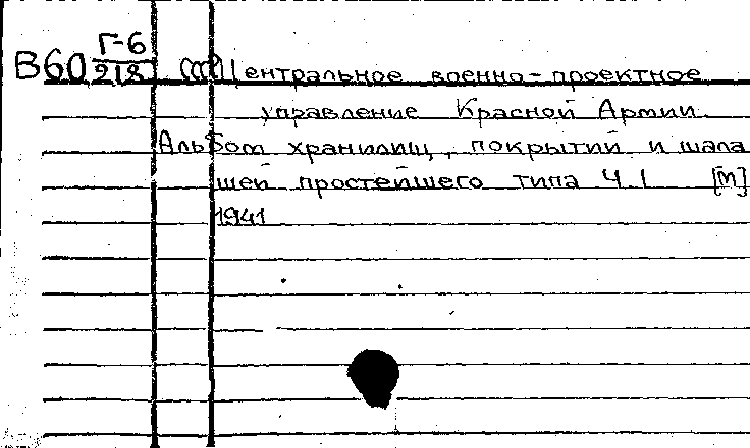 В60 Г-6/218 СССР Центральное военно-проектное
управление Красной Армии.
Альбом хранилищ, покрытий и шала
шей простейшего типа Ч.I [М]
1941